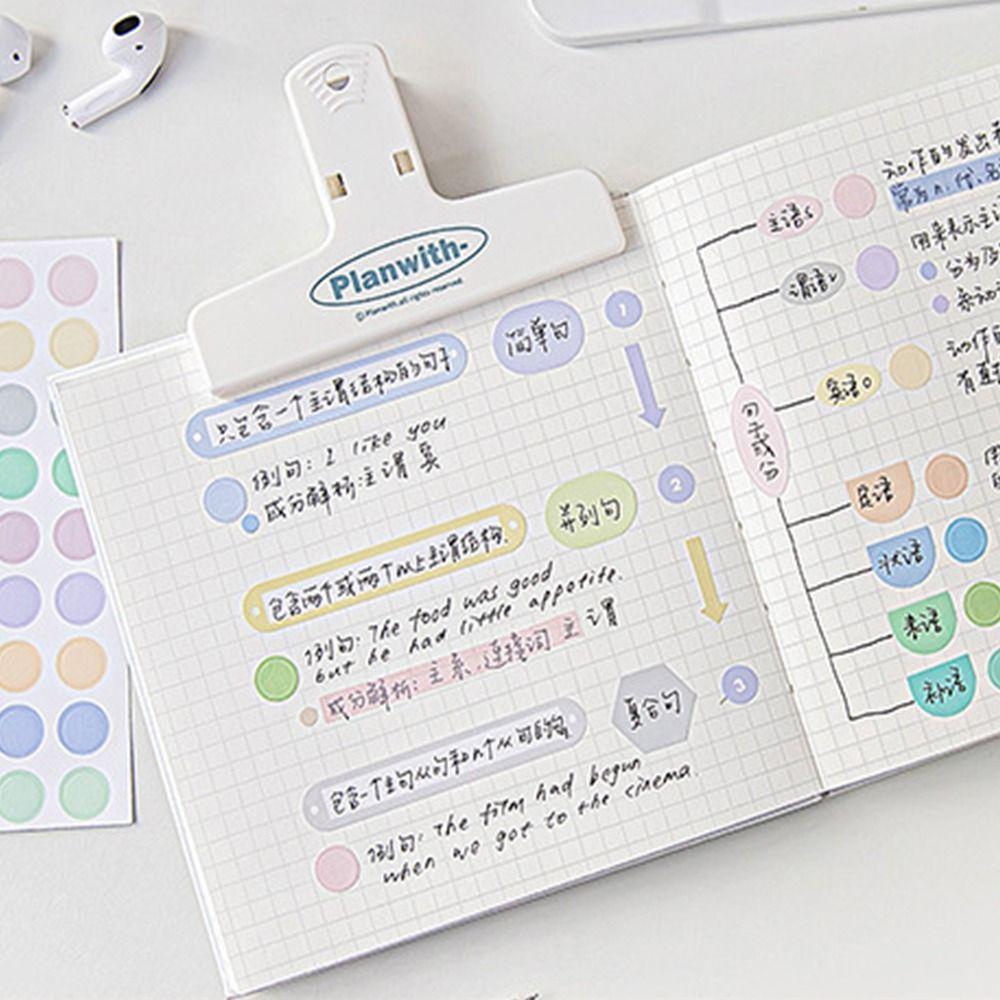 Planwith-
©Planwith.all rights reserved.
简单句
1
只包含一个主谓结构的句子
例句: I like you
成分解析:主 谓 宾
并列句
2
包含两个或两个以上主谓结构.
例句: The food was good
but he had little appetite.
成分解析: 主 系, 连接词 主 谓
复合句
3
包含一个主句从句和n个从句
例句: The film had begun
when we got to the cinema.
句子成分
主语s
动作的发出
常为n. 代. 名
谓语v
用来表示主语
分为及
系动
宾语o
动作的
有直接
定语
用
状语
表语
补语